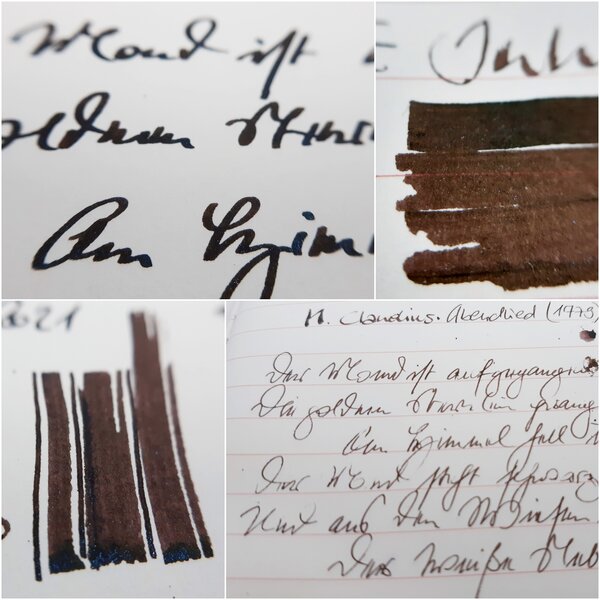 Mond ist
oldnen Stern
Am Himm
2021
M. Claudius. Abendlied (1779)
Der Mond ist aufgegangen
Die goldnen Sternlein prang
Am Himmel hell
Der Wald steht schwarz
Und aus den Wiesen
Der weiße Neb